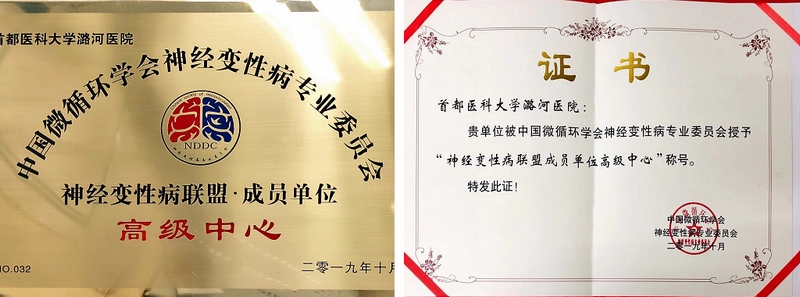 首都医科大学潞河医院
中国微循环学会神经变性病专业委员会
NDDC
神经变性病联盟·成员单位
高级中心
NO.032
二零一九年十月
证书
首都医科大学潞河医院：
贵单位被中国微循环学会神经变性病专业委员会授予
“神经变性病联盟成员单位高级中心”称号。
特发此证！
中国微循环学会
神经变性病专业委员会
二零一九年十月